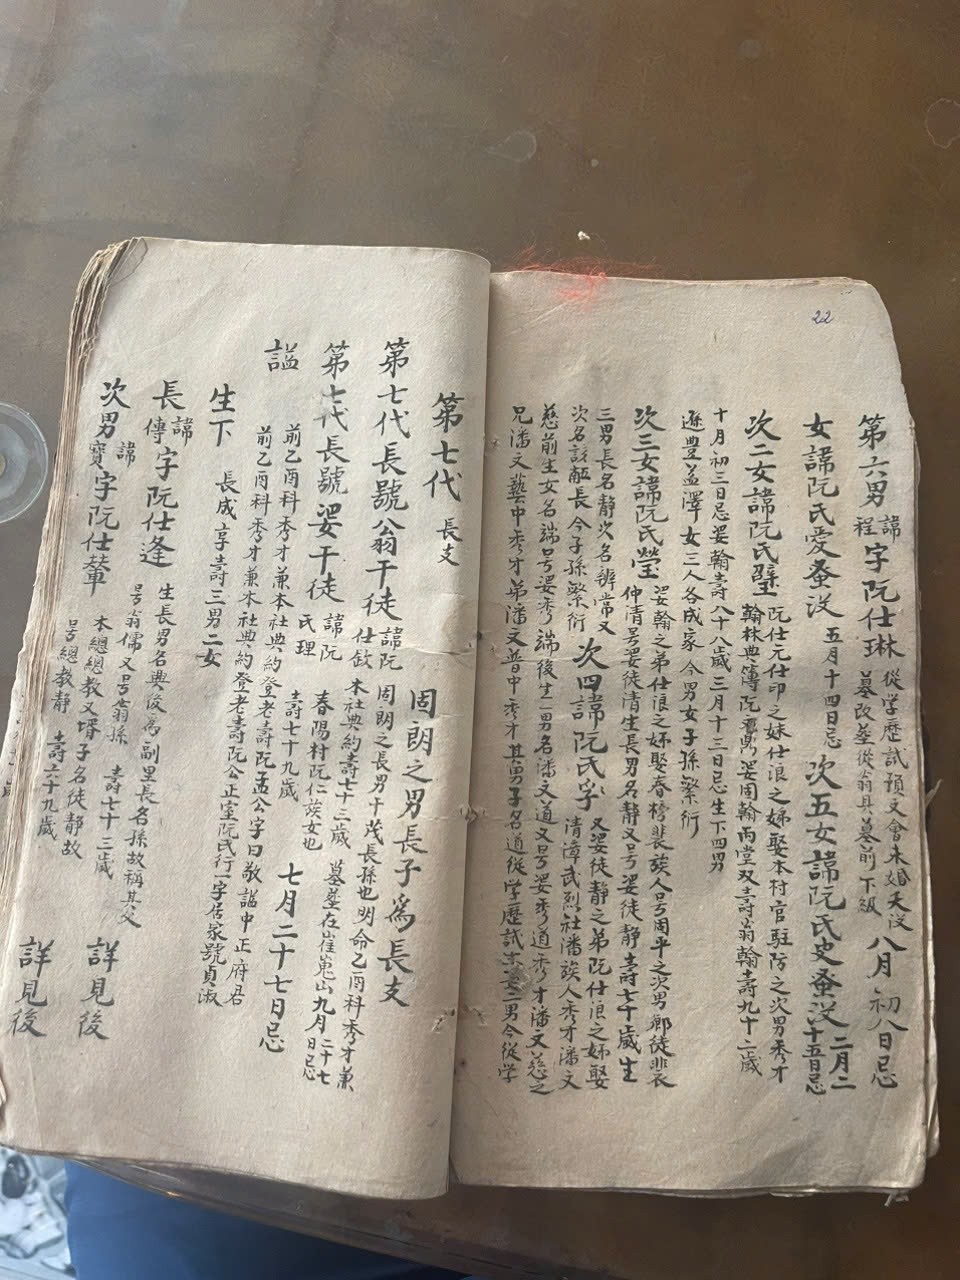 22
第六男諱程字阮仕琳 從学歷試預文會未婚夭没 墓改葬從翁具墓前下級 八月初八日忌
女諱阮氏愛蚤没 五月十四日忌 次五女諱阮氏史蚤没 二月二十五日忌
次二女諱阮氏璧 阮仕元仕卬之妹仕浪之姊娶本村官駐防之次男秀才 翰林典簿阮 娶用翰兩堂双壽翁翰壽九十二歲
十月初三日忌娶翰壽八十八歲三月十三日忌生下四男
遜豐益澤女三人各成家今男女子孫繁衍
次三女諱阮氏瑩 娶翰之弟仕浪之姊娶春榜裴族人号周平之次男鄉徒裴 仲清号娶徒清生長男名靜又号娶徒靜壽七十歲生
三男長名靜次名辨常又
次名 長今子孫繁衍 次四諱阮氏字 又娶徒靜之弟阮仕浪之姊娶 清漳武烈社潘族人秀才潘文
慈前生女名端号娶秀端後生一男名潘文道又号娶秀道秀才潘文慈之
兄潘文藝中秀才弟潘文普中秀才其男子名道從学歷試 二男今從学
第七代 長支
周朗之男長子為長支
第七代長號翁干徒 諱阮仕欽 周朗之長男十茂長孫也明命乙酉科秀才兼 本社典約壽七十三歲 墓塟在崔嵬山九月二十七日忌
第七代長號娿干徒 諱阮氏理 春陽村阮仁族女也 壽七十九歲 七月二十七日忌
諡 前乙酉科秀才兼本社典約登老壽阮孟公字曰敬諡中正府君
前乙酉科秀才兼本社典約登老壽阮公正室阮氏行一字居家號貞淑
生下 長成享壽三男二女
長諱傳字阮仕逢 生長男名典後為副里長名孫故稱其父 号翁儒又号翁孫 壽七十三歲 詳見後
次男諱寶字阮仕輦 本總總教又壻子名徒靜故 号總教靜 壽六十九歲 詳見後